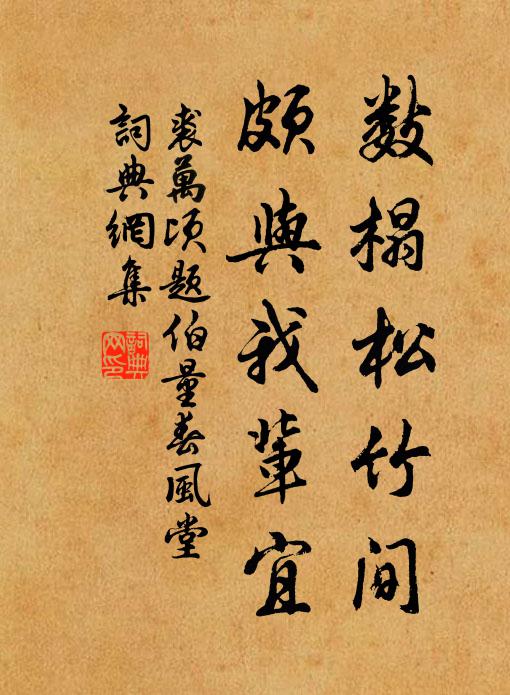 數榻松竹間
頗與我輩宜
裘萬頃題伯量春風堂
詞典網集
詞典網印